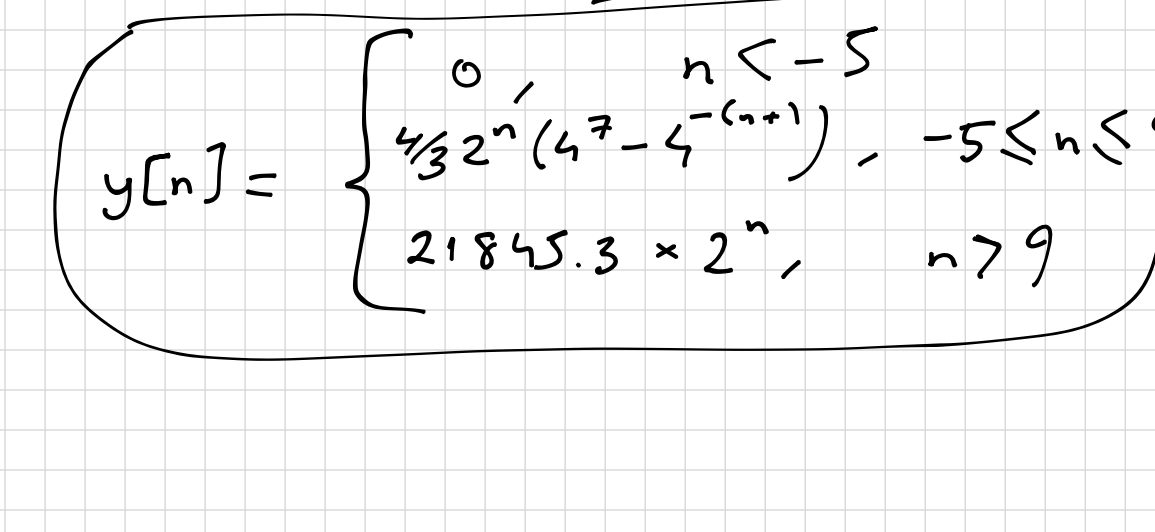 0, n < -5
y[n] = 4/3 2^n (4^7 - 4^-(n+1)), -5 ≤ n ≤
21845.3 × 2^n, n > 9